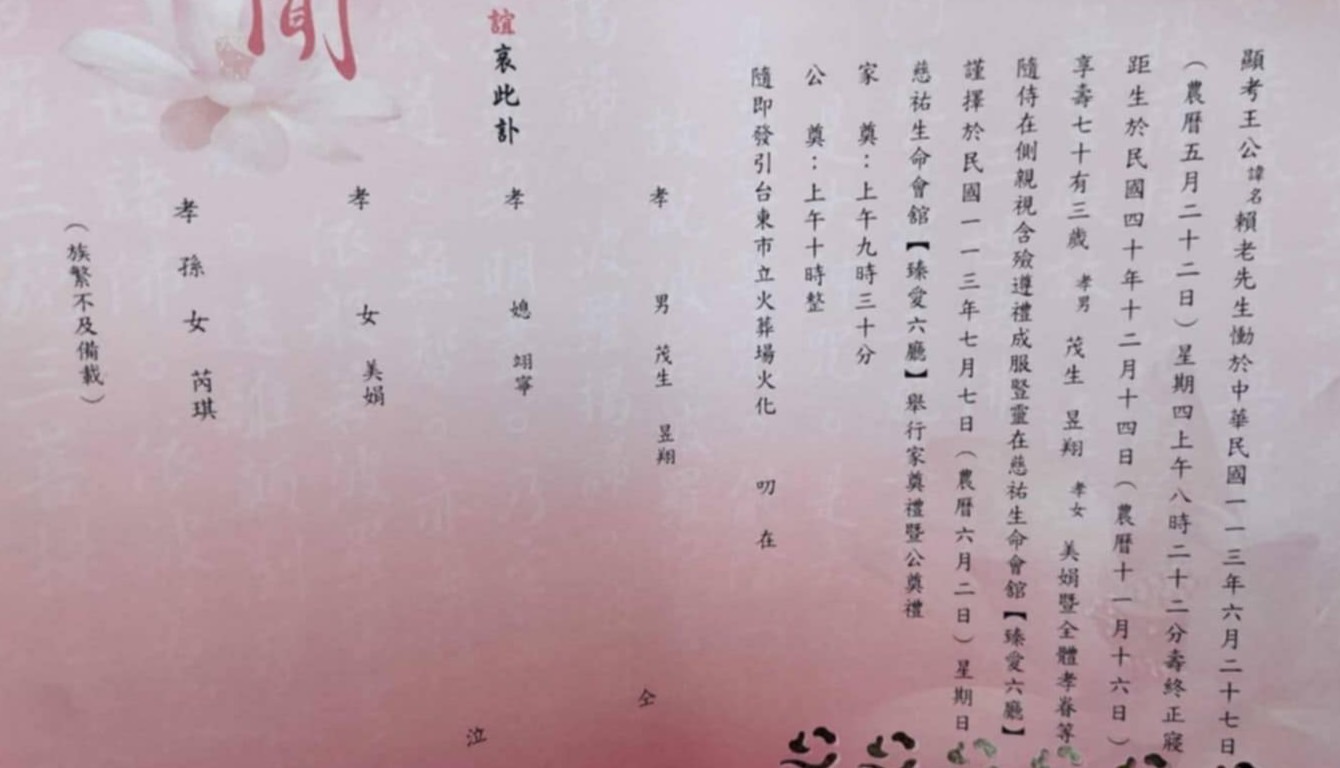 顯考王公諱名賴老先生慟於中華民國一一三年六月二十七日
（農曆五月二十二日）星期四上午八時二十二分壽終正寢
距生於民國四十年十二月十四日（農曆十一月十六日）
享壽七十有三歲 孝男 茂生 昱翔 孝女 美娟暨全體孝眷等
隨侍在側親視含殮遵禮成服豎靈在慈祐生命會館【臻愛六廳】
謹擇於民國一一三年七月七日（農曆六月二日）星期日
慈祐生命會館【臻愛六廳】舉行家奠禮暨公奠禮
家 奠：上午九時三十分
公 奠：上午十時整
隨即發引台東市立火葬場火化 叨 在
孝 男 茂生 昱翔 仝
誼哀此訃
孝 媳 翊寧 泣
孝 女 美娟
聞
孝 孫 女 芮琪
（族繁不及備載）